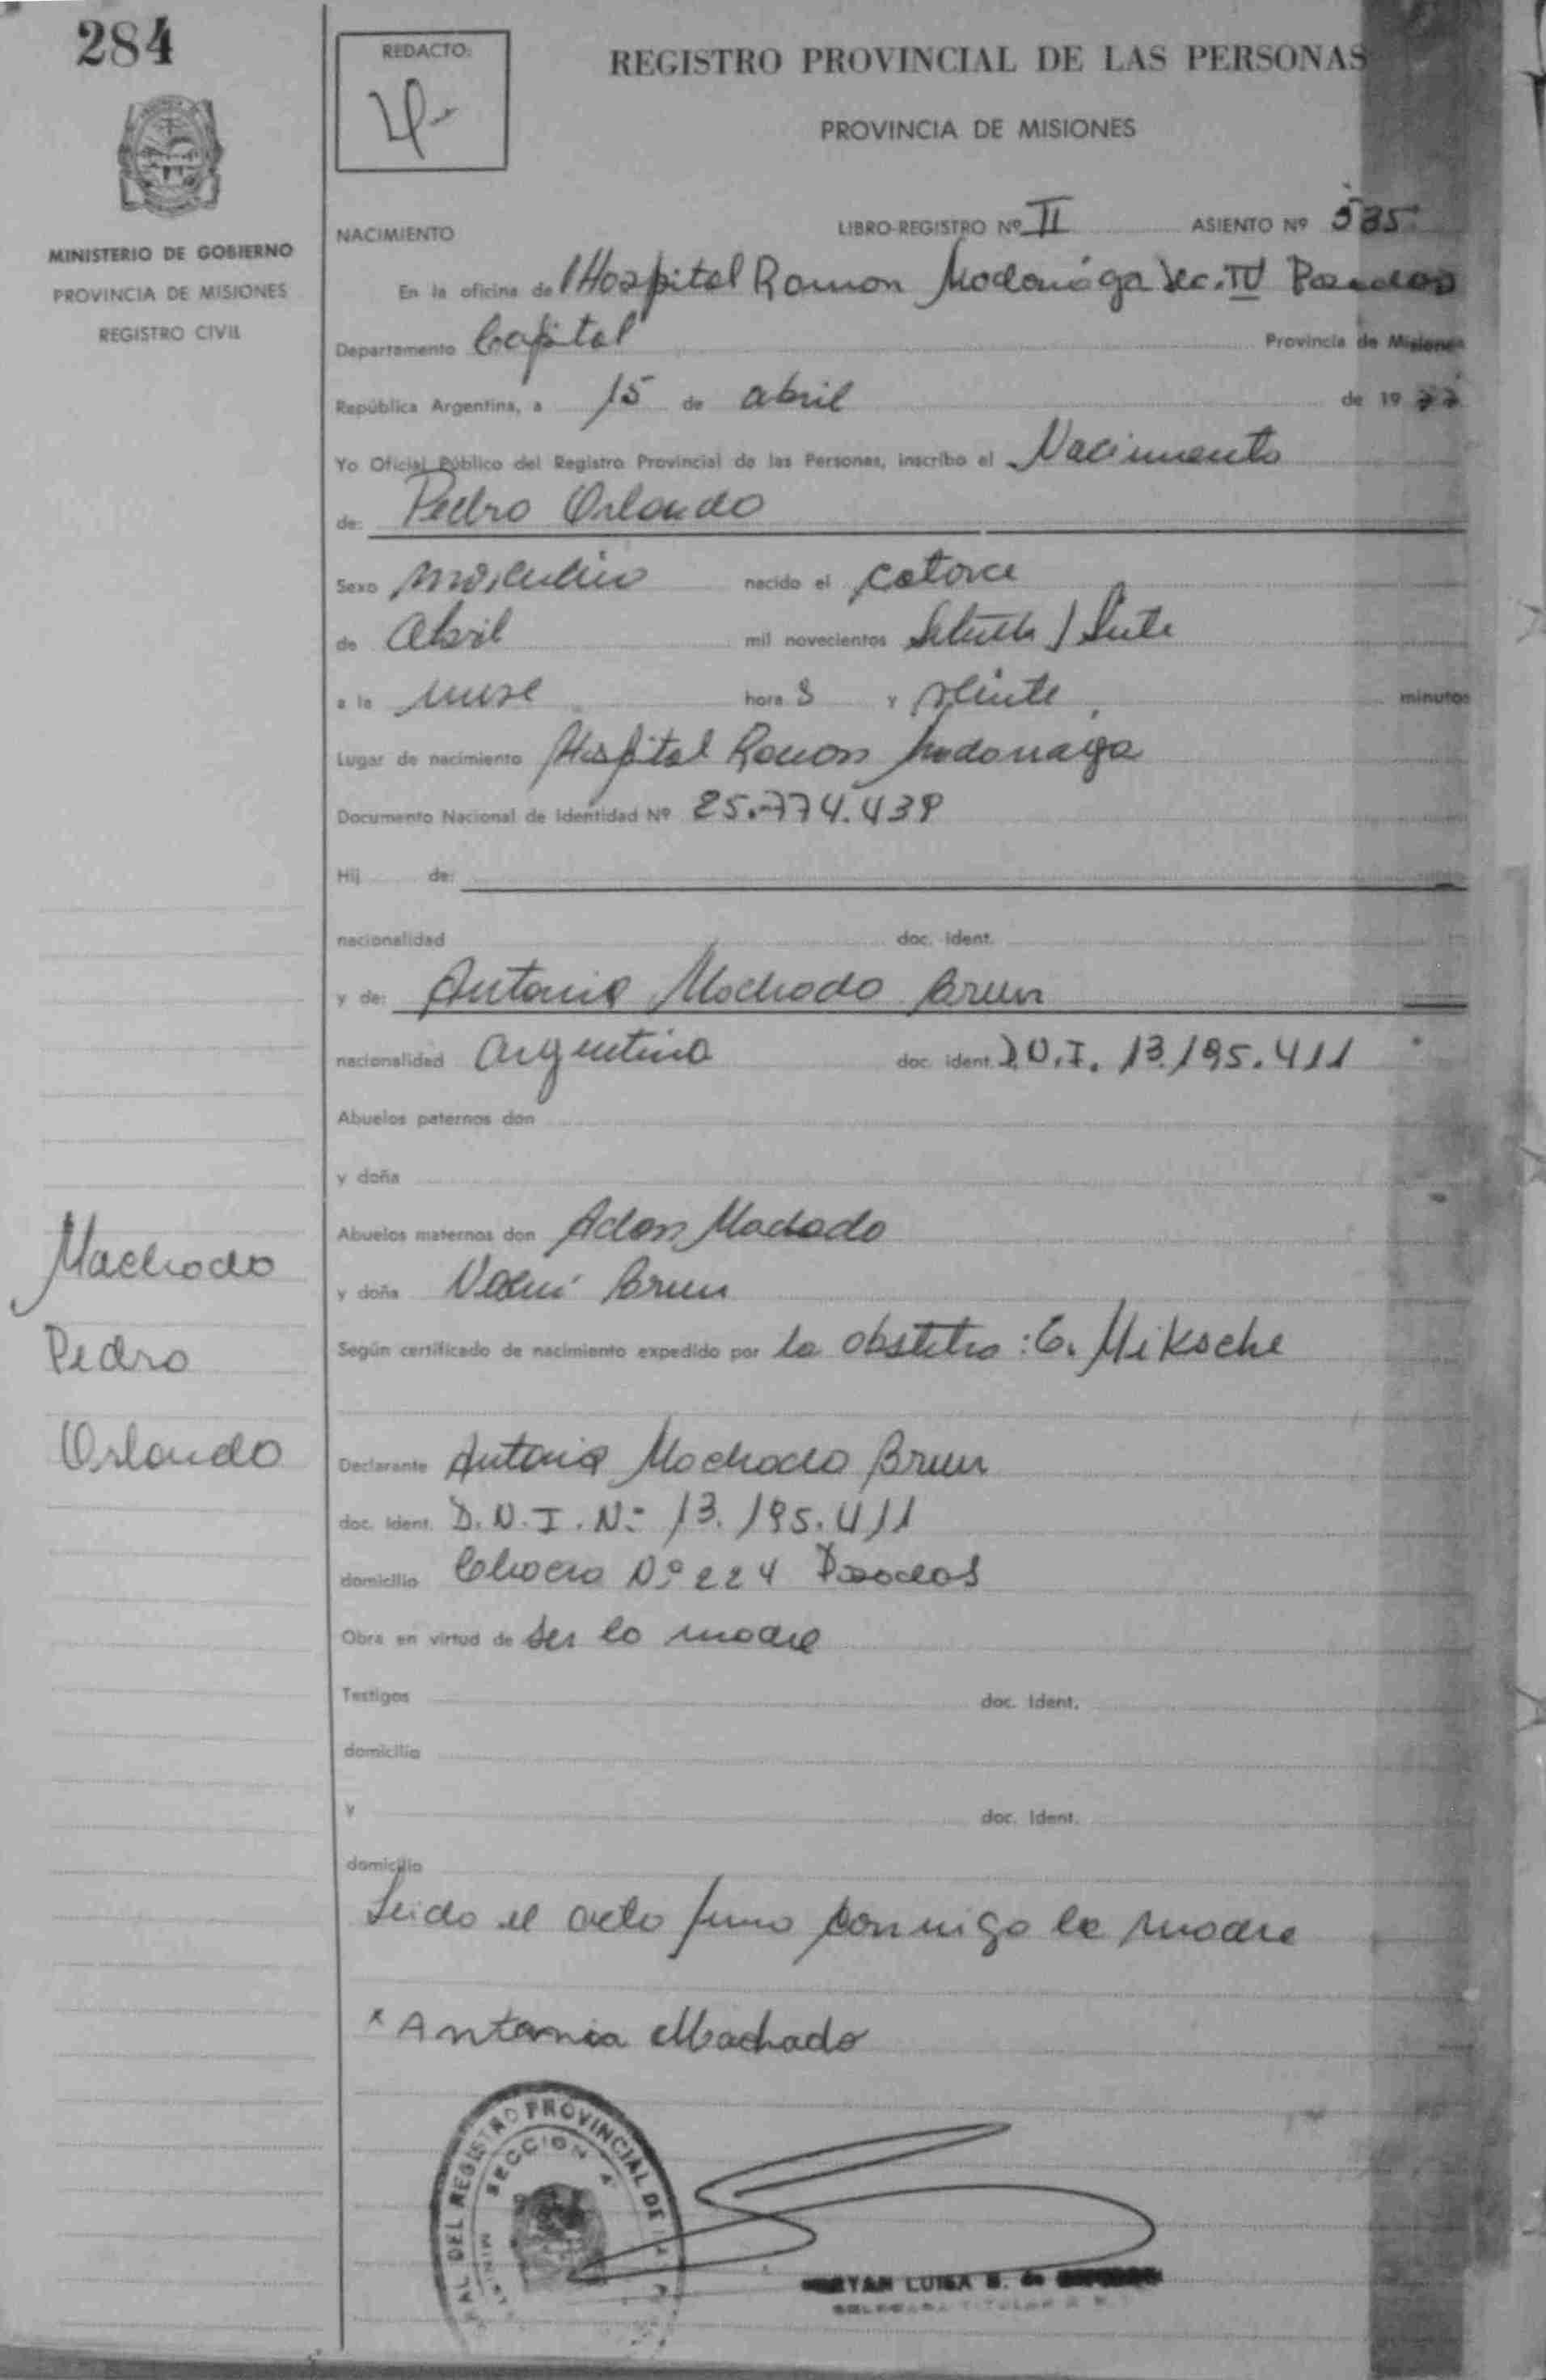 284
REDACTO:
REGISTRO PROVINCIAL DE LAS PERSONAS
PROVINCIA DE MISIONES
MINISTERIO DE GOBIERNO
PROVINCIA DE MISIONES
REGISTRO CIVIL
NACIMIENTO LIBRO-REGISTRO Nº II ASIENTO Nº 535
En la oficina de Hospital Ramon Madariaga Sec. IV Posadas
Departamento Capital Provincia de Misiones
República Argentina, a 15 de abril de 19 77
Yo Oficial Público del Registro Provincial de las Personas, inscribo el Nacimiento
de: Pedro Orlando
Sexo masculino nacido el catorce
de Abril mil novecientos Setenta y Siete
a la nueve hora s y veinte minutos
Lugar de nacimiento Hospital Ramon Madariaga
Documento Nacional de Identidad Nº 25.774.439
Hij de:
nacionalidad doc. ident.
y de: Antonia Machado Brun
nacionalidad argentina doc. ident. D.N.I. 13.195.411
Abuelos paternos don
y doña
Abuelos maternos don Adan Machado
y doña Noemí Brun
Según certificado de nacimiento expedido por la obstetra: G. Miksche
Machado
Pedro
Orlando
Declarante Antonia Machado Brun
doc. Ident. D.N.I. Nº 13.195.411
domicilio Chacra Nº 224 Posadas
Obra en virtud de ser la madre
Testigos doc. Ident.
domicilio
y doc. Ident.
domicilio
Leido el acta firma conmigo la madre
x Antonia Machado
DEL REGISTRO PROVINCIAL DE
SECCION 4
LUISA